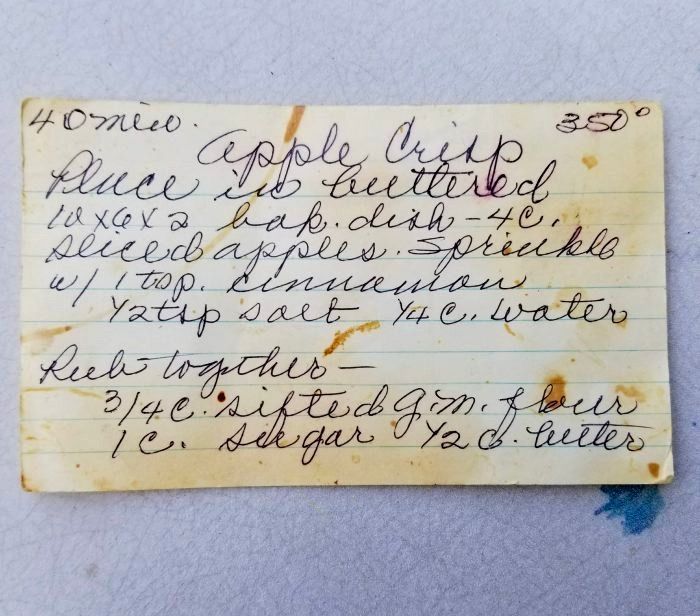 40 min. 350°
Apple Crisp
Place in buttered
10x6x2 bak. dish - 4c.
sliced apples. Sprinkle
w/ 1 tsp. cinnamon
1/2 tsp salt 1/4 c. water
Rub together —
3/4 c. sifted g.m. flour
1 c. sugar 1/2 c. butter